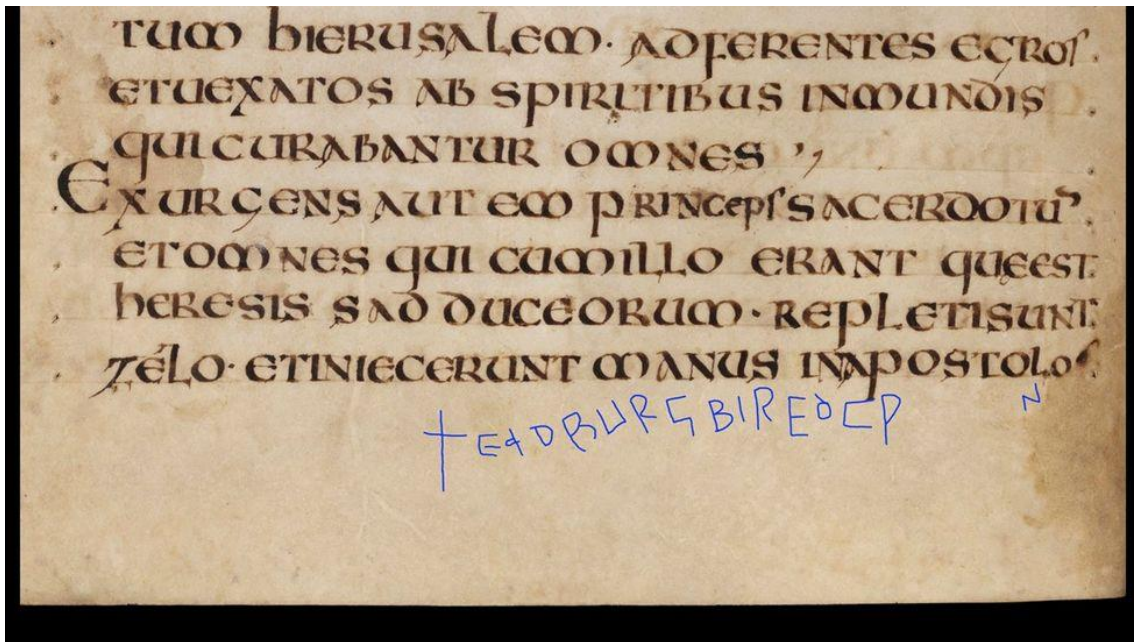 TUM hIERUSALEM· ADFERENTES EGROS.
ETUEXATOS AB SPIRITIBUS INMUNDIS
QUICURABANTUR OMNES
EXURGENS AUTEM PRINCEPS SACERDOTŪ
ETOMNES QUI CUMILLO ERANT QUEEST
hERESIS SADDUCEORUM· REPLETISUNT
ZELO· ETINIECERUNT MANUS INAPOSTOLOS
†EADBURG BIREDCP N